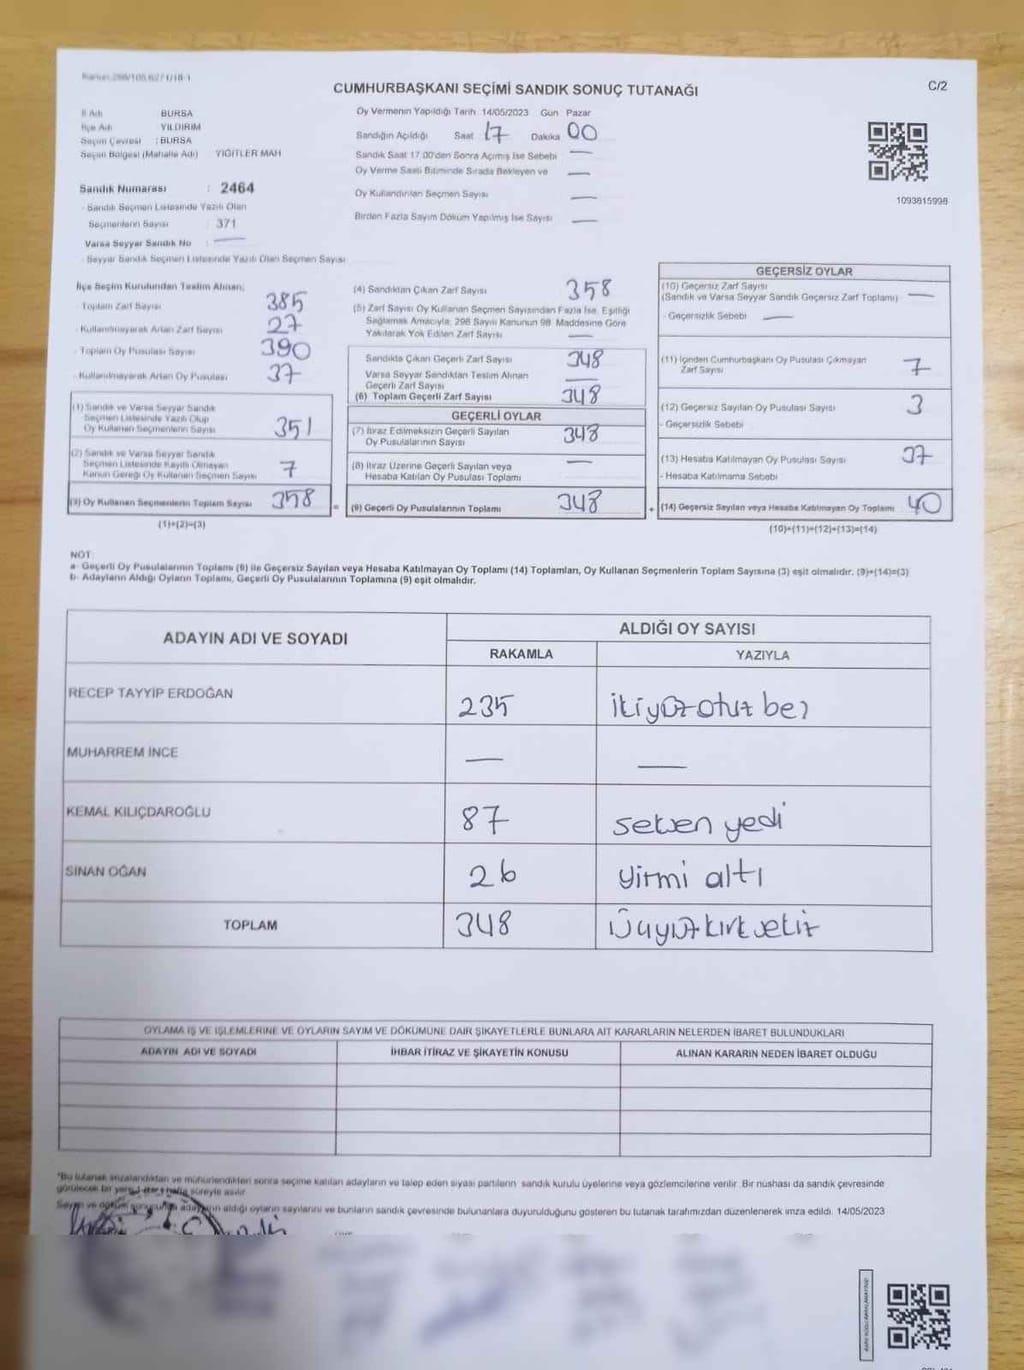 CUMHURBAŞKANI SEÇİMİ SANDIK SONUÇ TUTANAĞI
C/2
İl Adı BURSA
İlçe Adı YILDIRIM
Seçim Çevresi : BURSA
Seçim Bölgesi (Mahalle Adı) YİĞİTLER MAH
Sandık Numarası : 2464
Sandık Seçmen Listesinde Yazılı Olan
Seçmenlerin Sayısı : 371
Varsa Seyyar Sandık No : —
Seyyar Sandık Seçmen Listesinde Yazılı Olan Seçmen Sayısı
Oy Vermenin Yapıldığı Tarih 14/05/2023 Gün Pazar
Sandığın Açıldığı Saat 17 Dakika 00
Sandık Saat 17.00'den Sonra Açımış İse Sebebi —
Oy Verme Saati Bitiminde Sırada Bekleyen ve —
Oy Kullandırılan Seçmen Sayısı —
Birden Fazla Sayım Döküm Yapılmış İse Sayısı —
1093815998
İlçe Seçim Kurulundan Teslim Alınan;
- Toplam Zarf Sayısı 385
- Kullanılmayarak Artan Zarf Sayısı 27
- Toplam Oy Pusulası Sayısı 390
- Kullanılmayarak Artan Oy Pusulası 37
(1) Sandık ve Varsa Seyyar Sandık
Seçmen Listesinde Yazılı Olup
Oy Kullanan Seçmenlerin Sayısı 351
(2) Sandık ve Varsa Seyyar Sandık
Seçmen Listesinde Kayıtlı Olmayan
Kanun Gereği Oy Kullanan Seçmen Sayısı 7
(3) Oy Kullanan Seçmenlerin Toplam Sayısı 358 =
(1)+(2)=(3)
(4) Sandıktan Çıkan Zarf Sayısı 358
(5) Zarf Sayısı Oy Kullanan Seçmen Sayısından Fazla İse, Eşitliği
Sağlamak Amacıyla, 298 Sayılı Kanunun 98. Maddesine Göre
Yakılarak Yok Edilen Zarf Sayısı —
Sandıkta Çıkan Geçerli Zarf Sayısı 348
Varsa Seyyar Sandıktan Teslim Alınan
Geçerli Zarf Sayısı —
(6) Toplam Geçerli Zarf Sayısı 348
GEÇERLİ OYLAR
(7) İtiraz Edilmeksizin Geçerli Sayılan
Oy Pusulalarının Sayısı 348
(8) İtiraz Üzerine Geçerli Sayılan veya
Hesaba Katılan Oy Pusulası Toplamı —
(9) Geçerli Oy Pusulalarının Toplamı 348 +
GEÇERSİZ OYLAR
(10) Geçersiz Zarf Sayısı
(Sandık ve Varsa Seyyar Sandık Geçersiz Zarf Toplamı) —
- Geçersizlik Sebebi —
(11) İçinden Cumhurbaşkanı Oy Pusulası Çıkmayan
Zarf Sayısı 7
(12) Geçersiz Sayılan Oy Pusulası Sayısı 3
- Geçersizlik Sebebi
(13) Hesaba Katılmayan Oy Pusulası Sayısı 37
- Hesaba Katılmama Sebebi
(14) Geçersiz Sayılan veya Hesaba Katılmayan Oy Toplamı 40
(10)+(11)+(12)+(13)=(14)
NOT:
a- Geçerli Oy Pusulalarının Toplamı (9) ile Geçersiz Sayılan veya Hesaba Katılmayan Oy Toplamı (14) Toplamları, Oy Kullanan Seçmenlerin Toplam Sayısına (3) eşit olmalıdır. (9)+(14)=(3)
b- Adayların Aldığı Oyların Toplamı, Geçerli Oy Pusulalarının Toplamına (9) eşit olmalıdır.
ADAYIN ADI VE SOYADI
ALDIĞI OY SAYISI
RAKAMLA YAZIYLA
RECEP TAYYİP ERDOĞAN 235 ikiyüz otuz beş
MUHARREM İNCE — —
KEMAL KILIÇDAROĞLU 87 seksen yedi
SİNAN OĞAN 26 yirmi altı
TOPLAM 348 Üçyüz kırk sekiz
OYLAMA İŞ VE İŞLEMLERİNE VE OYLARIN SAYIM VE DÖKÜMÜNE DAİR ŞİKAYETLERLE BUNLARA AİT KARARLARIN NELERDEN İBARET BULUNDUKLARI
ADAYIN ADI VE SOYADI İHBAR İTİRAZ VE ŞİKAYETİN KONUSU ALINAN KARARIN NEDEN İBARET OLDUĞU
*Bu tutanak imzalandıktan ve mühürlendikten sonra seçime katılan adayların ve talep eden siyasi partilerin sandık kurulu üyelerine veya gözlemcilerine verilir. Bir nüshası da sandık çevresinde
görülecek bir yere 1 hafta süreyle asılır
Sayım ve döküm adayların aldığı oyların sayılarını ve bunların sandık çevresinde bulunanlara duyurulduğunu gösteren bu tutanak tarafımızdan düzenlenerek imza edildi. 14/05/2023